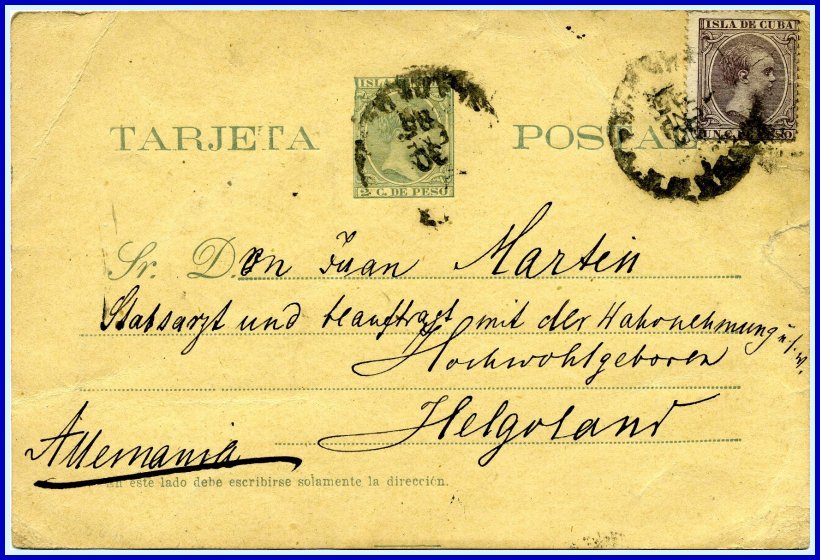 ISLA DE CUBA
ISLA
TARJETA POSTAL
2 C. DE PESO
Sr. Don Juan Martin
Stabsarzt und beauftragt mit der Wahrnehmung u.s.w.
Hochwohlgeboren
Helgoland
Allemania
En este lado debe escribirse solamente la dirección.